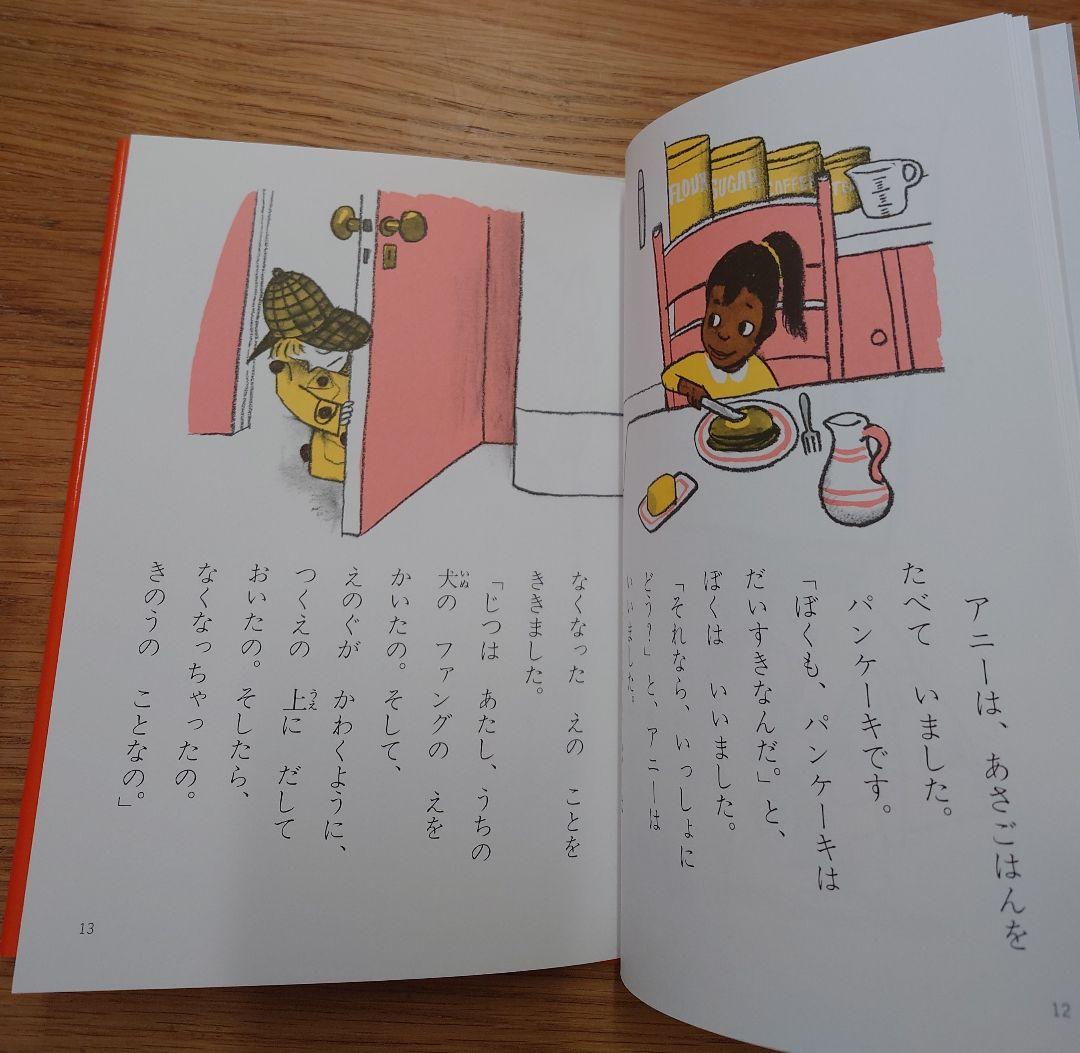 FLOUR SUGAR COFFEE TE
アニーは、あさごはんを
たべて　いました。
パンケーキです。
「ぼくも、パンケーキは
だいすきなんだ。」と、
ぼくは　いいました。
「それなら、いっしょに
どう？」と、アニーは
いいました。
12
なくなった　えの　ことを
ききました。
「じつは　あたし、うちの
犬の　ファングの　えを
かいたの。そして、
えのぐが　かわくように、
つくえの　上に　だして
おいたの。そしたら、
なくなっちゃったの。
きのうの　ことなの。」
13